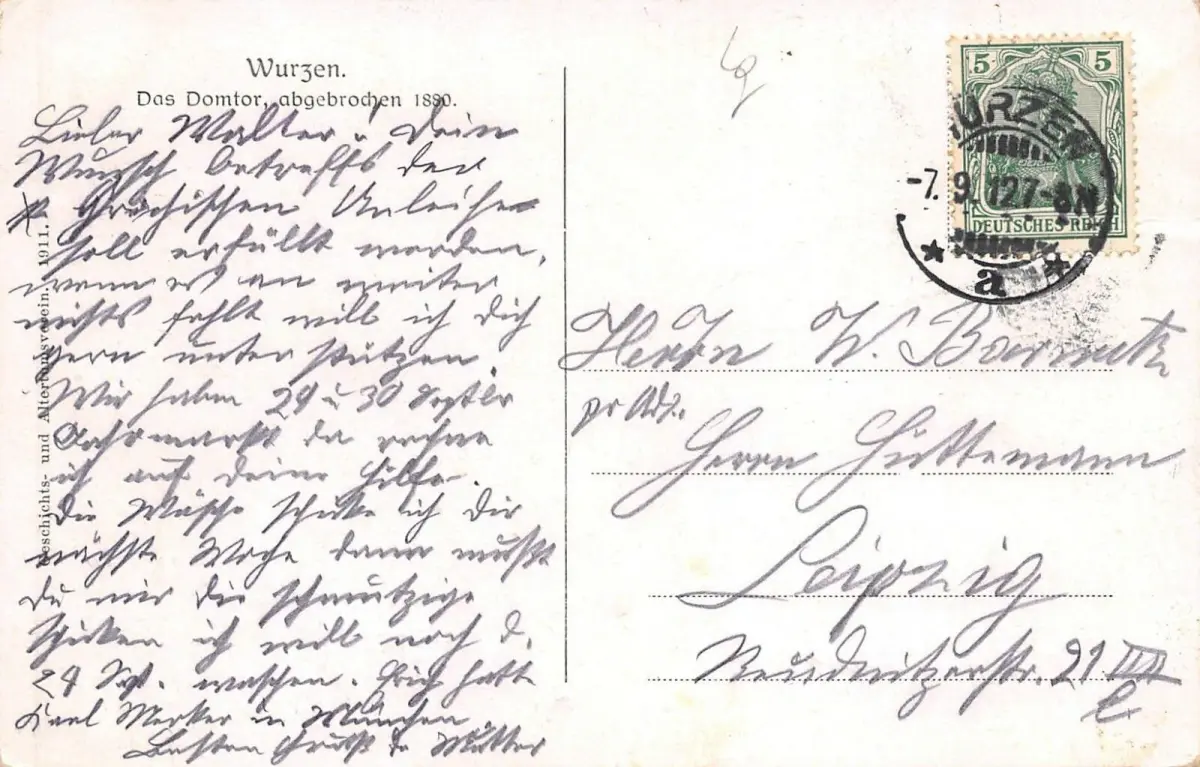 Wurzen.
Das Domtor, abgebrochen 1890.
Lieber Walter! Dein
Wunsch betreffs der
Grächischen Anleihe
soll erfüllt werden,
wenn es an weiter
nichts fehlt will ich dich
gern unterstützen.
Wir haben 29 u 30 Septbr
Jahrmarkt da rechne
ich auf deine Hilfe.
Die Wäsche schicke ich Dir
nächste Woche dann mußt
Du mir die schmutzige
schicken ich will noch d.
24 Sept. waschen. Erich hatte
Karl Merker in München
Besten Gruß Mutter
Geschichts- und Altertumsverein. 1911.
5 5
DEUTSCHES REICH
WURZEN
-7. 9. 12 7-8N
* a *
Herrn W.
pr Adr.
Herrn Hüttemann
Leipzig
Reudnitzerstr. 21 III
l